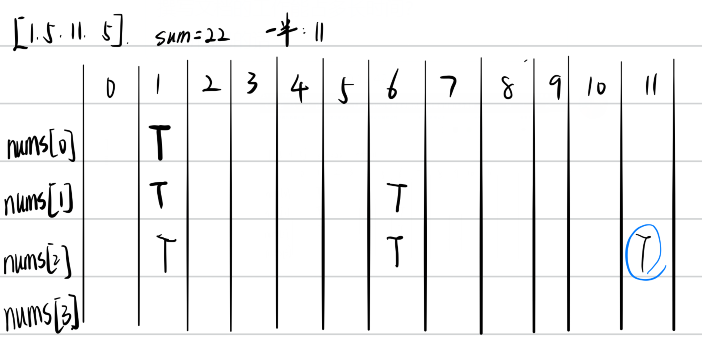 [1.5.11.5]. sum=22 一半:11
0 1 2 3 4 5 6 7 8 9 10 11
nums[0] T
nums[1] T T
nums[2] T T T
nums[3]